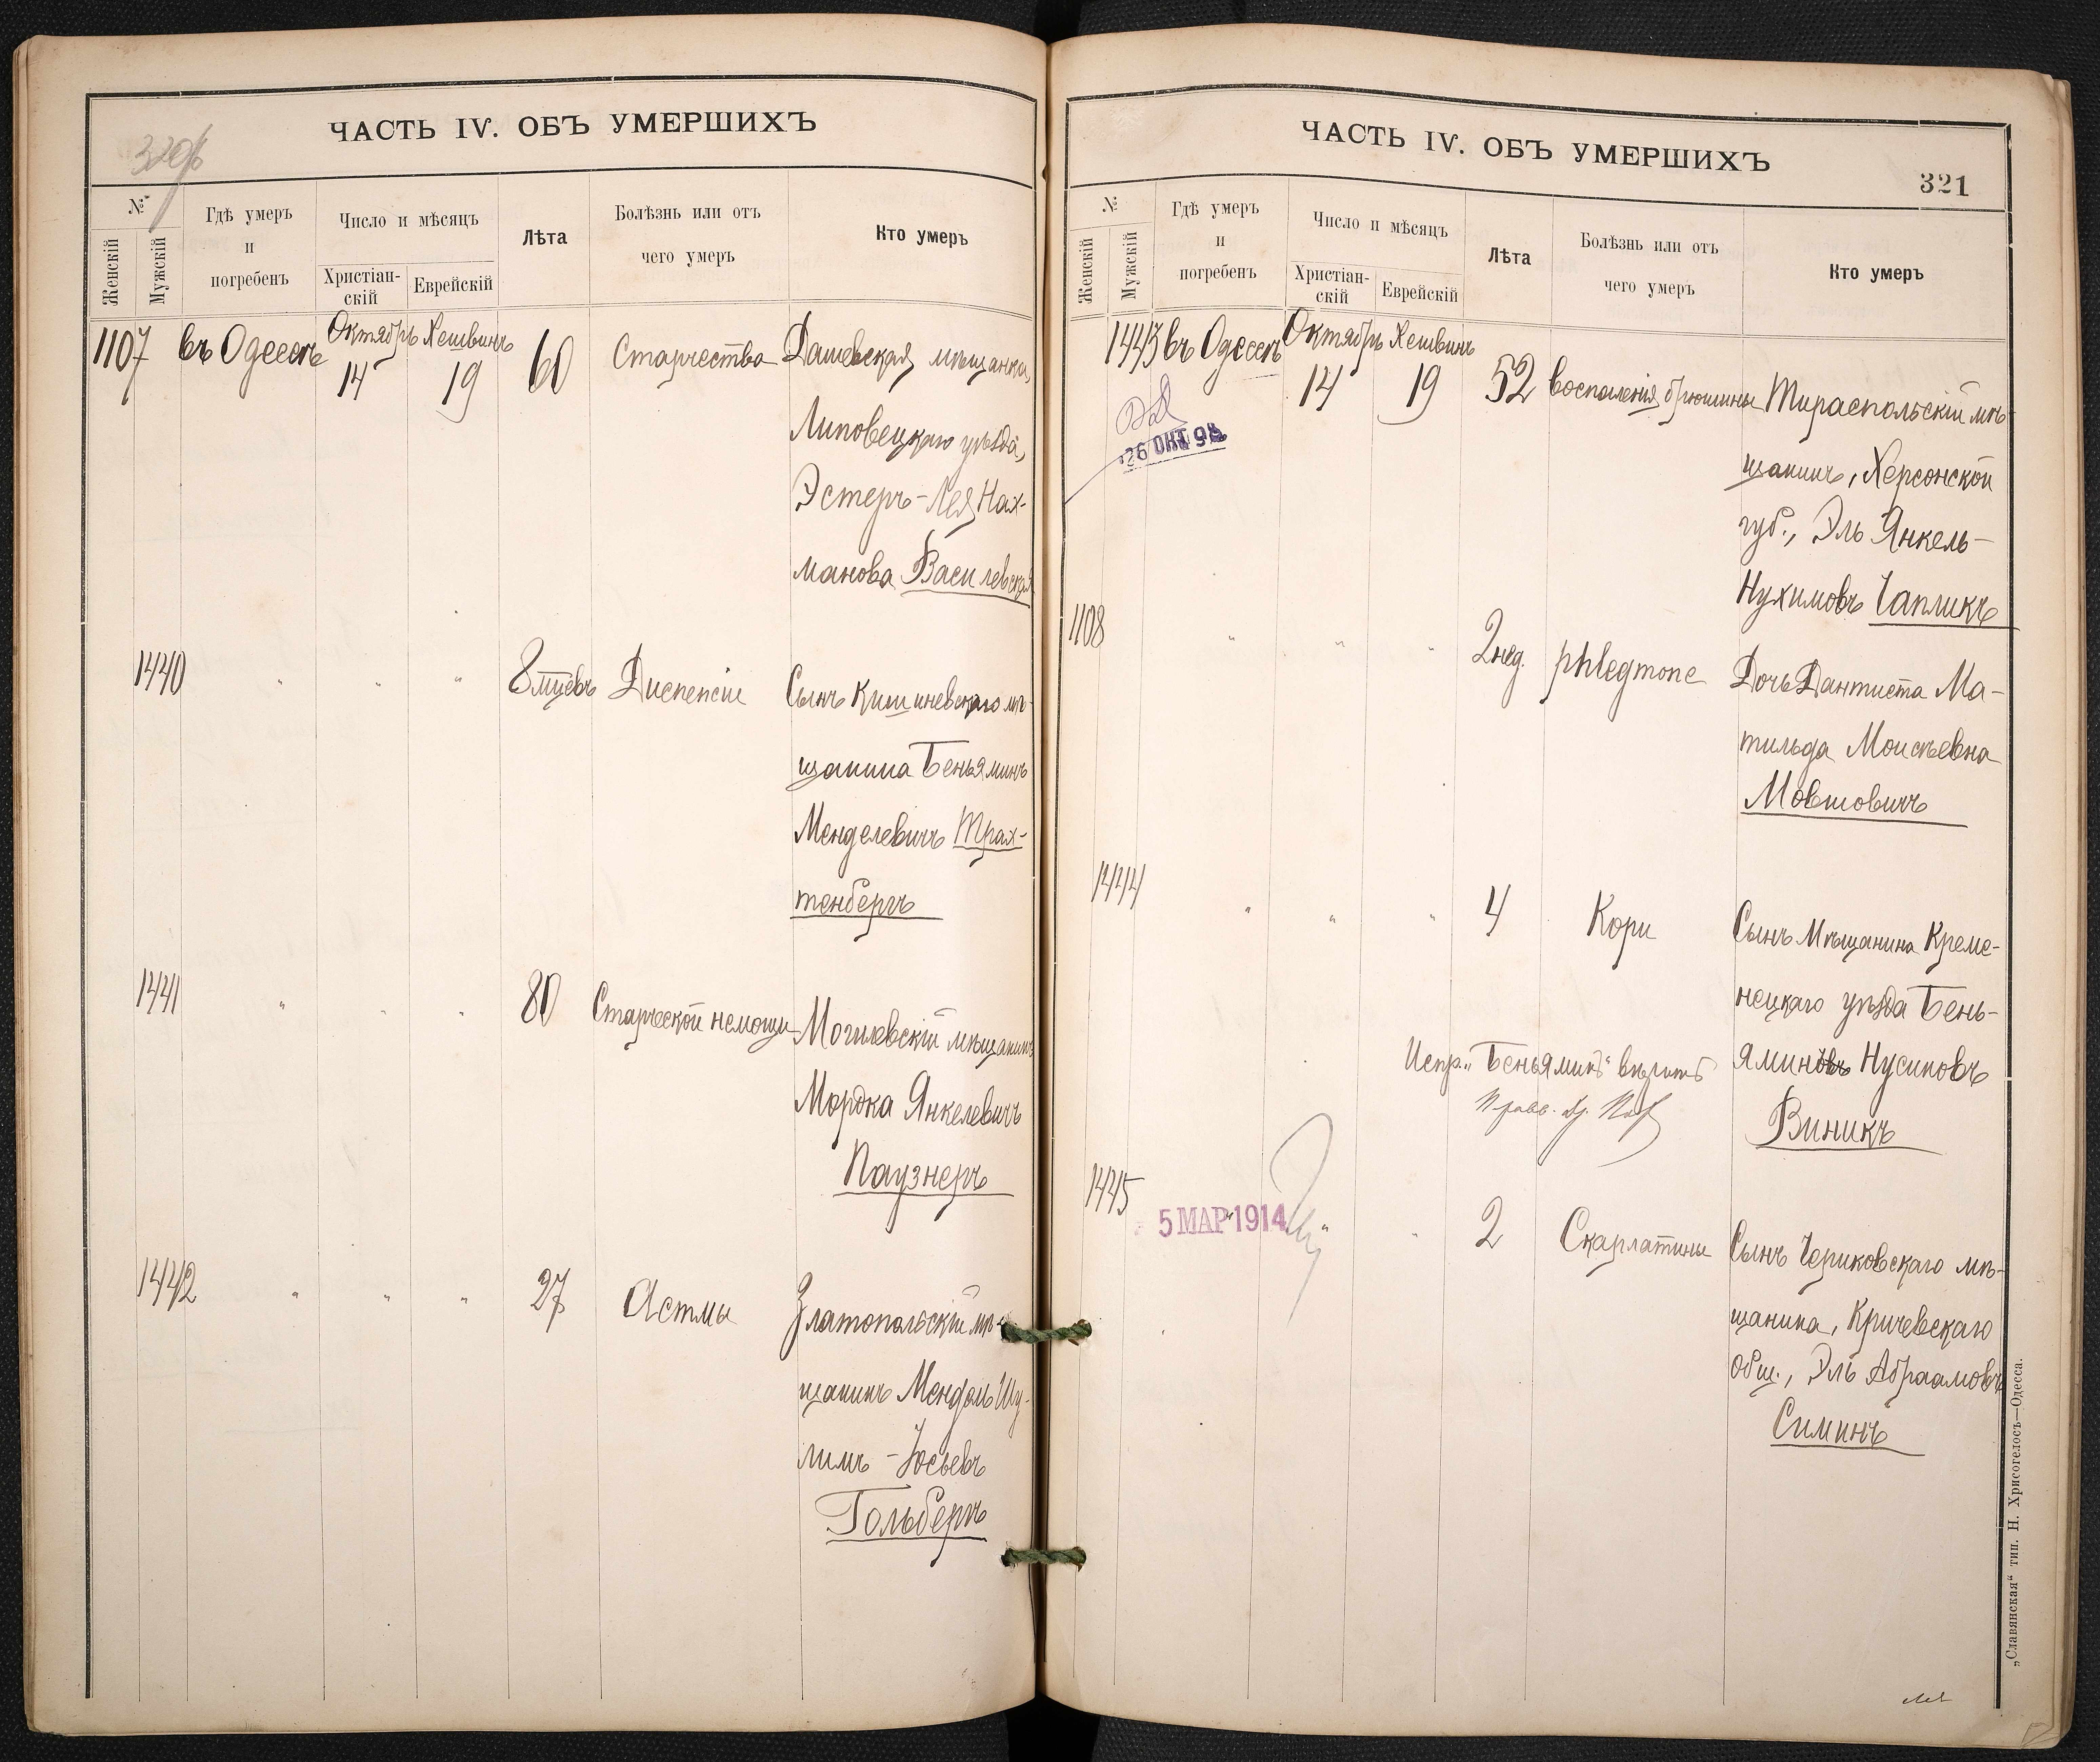 ЧАСТЬ IV. ОБЪ УМЕРШИХЪ
320/б
№
Женскій
Мужскій
Гдѣ умеръ
и
погребенъ
Число и мѣсяцъ
Христіан-
скій
Еврейскій
Лѣта
Болѣзнь или отъ
чего умеръ
Кто умеръ
1107 въ Одессѣ Октябрь Хешвинъ
14 19 60 Старчества Дашевская мѣщанка,
Липовецкаго уѣзда,
Эстеръ-Лея Нах-
манова Василевская
1440 " " " 8 мцевъ Диспепсіи Сынъ Кишиневскаго мѣ-
щанина Беньяминъ
Менделевичъ Трах-
тенбергъ
1441 " " " 80 Старческой немощи Могилевскій мѣщанинъ
Мордка Янкелевичъ
Паузнеръ
1442 " " " 27 Астмы Златопольскій мѣ-
щанинъ Мендель Шу-
лимъ-Іосьевъ
Гольбергъ
ЧАСТЬ IV. ОБЪ УМЕРШИХЪ
321
№
Женскій
Мужскій
Гдѣ умеръ
и
погребенъ
Число и мѣсяцъ
Христіан-
скій
Еврейскій
Лѣта
Болѣзнь или отъ
чего умеръ
Кто умеръ
1443 въ Одессѣ Октябрь Хешвинъ
14 19 52 воспаленія брюшины Тираспольскій мѣ-
щанинъ, Херсонской
губ., Эль Янкель-
Нухимовъ Чапликъ
26 ОКТ 98
1108 " " " 2 нед. phlegmone Дочь Дантиста Ма-
тильда Моисѣевна
Мовшовичъ
1444 " " " 4 Кори Сынъ Мѣщанина Креме-
нецкаго уѣзда Бень-
яминовъ Нусиновъ
Виникъ
Испр. "Беньяминъ" вѣрить
1445 " " " 2 Скарлатины Сынъ Чериковскаго мѣ-
щанина, Кричевскаго
общ., Эль Абраамовъ
Симинъ
5 МАР 1914
„Славянская“ тип. Н. Хрисогелосъ—Одесса.